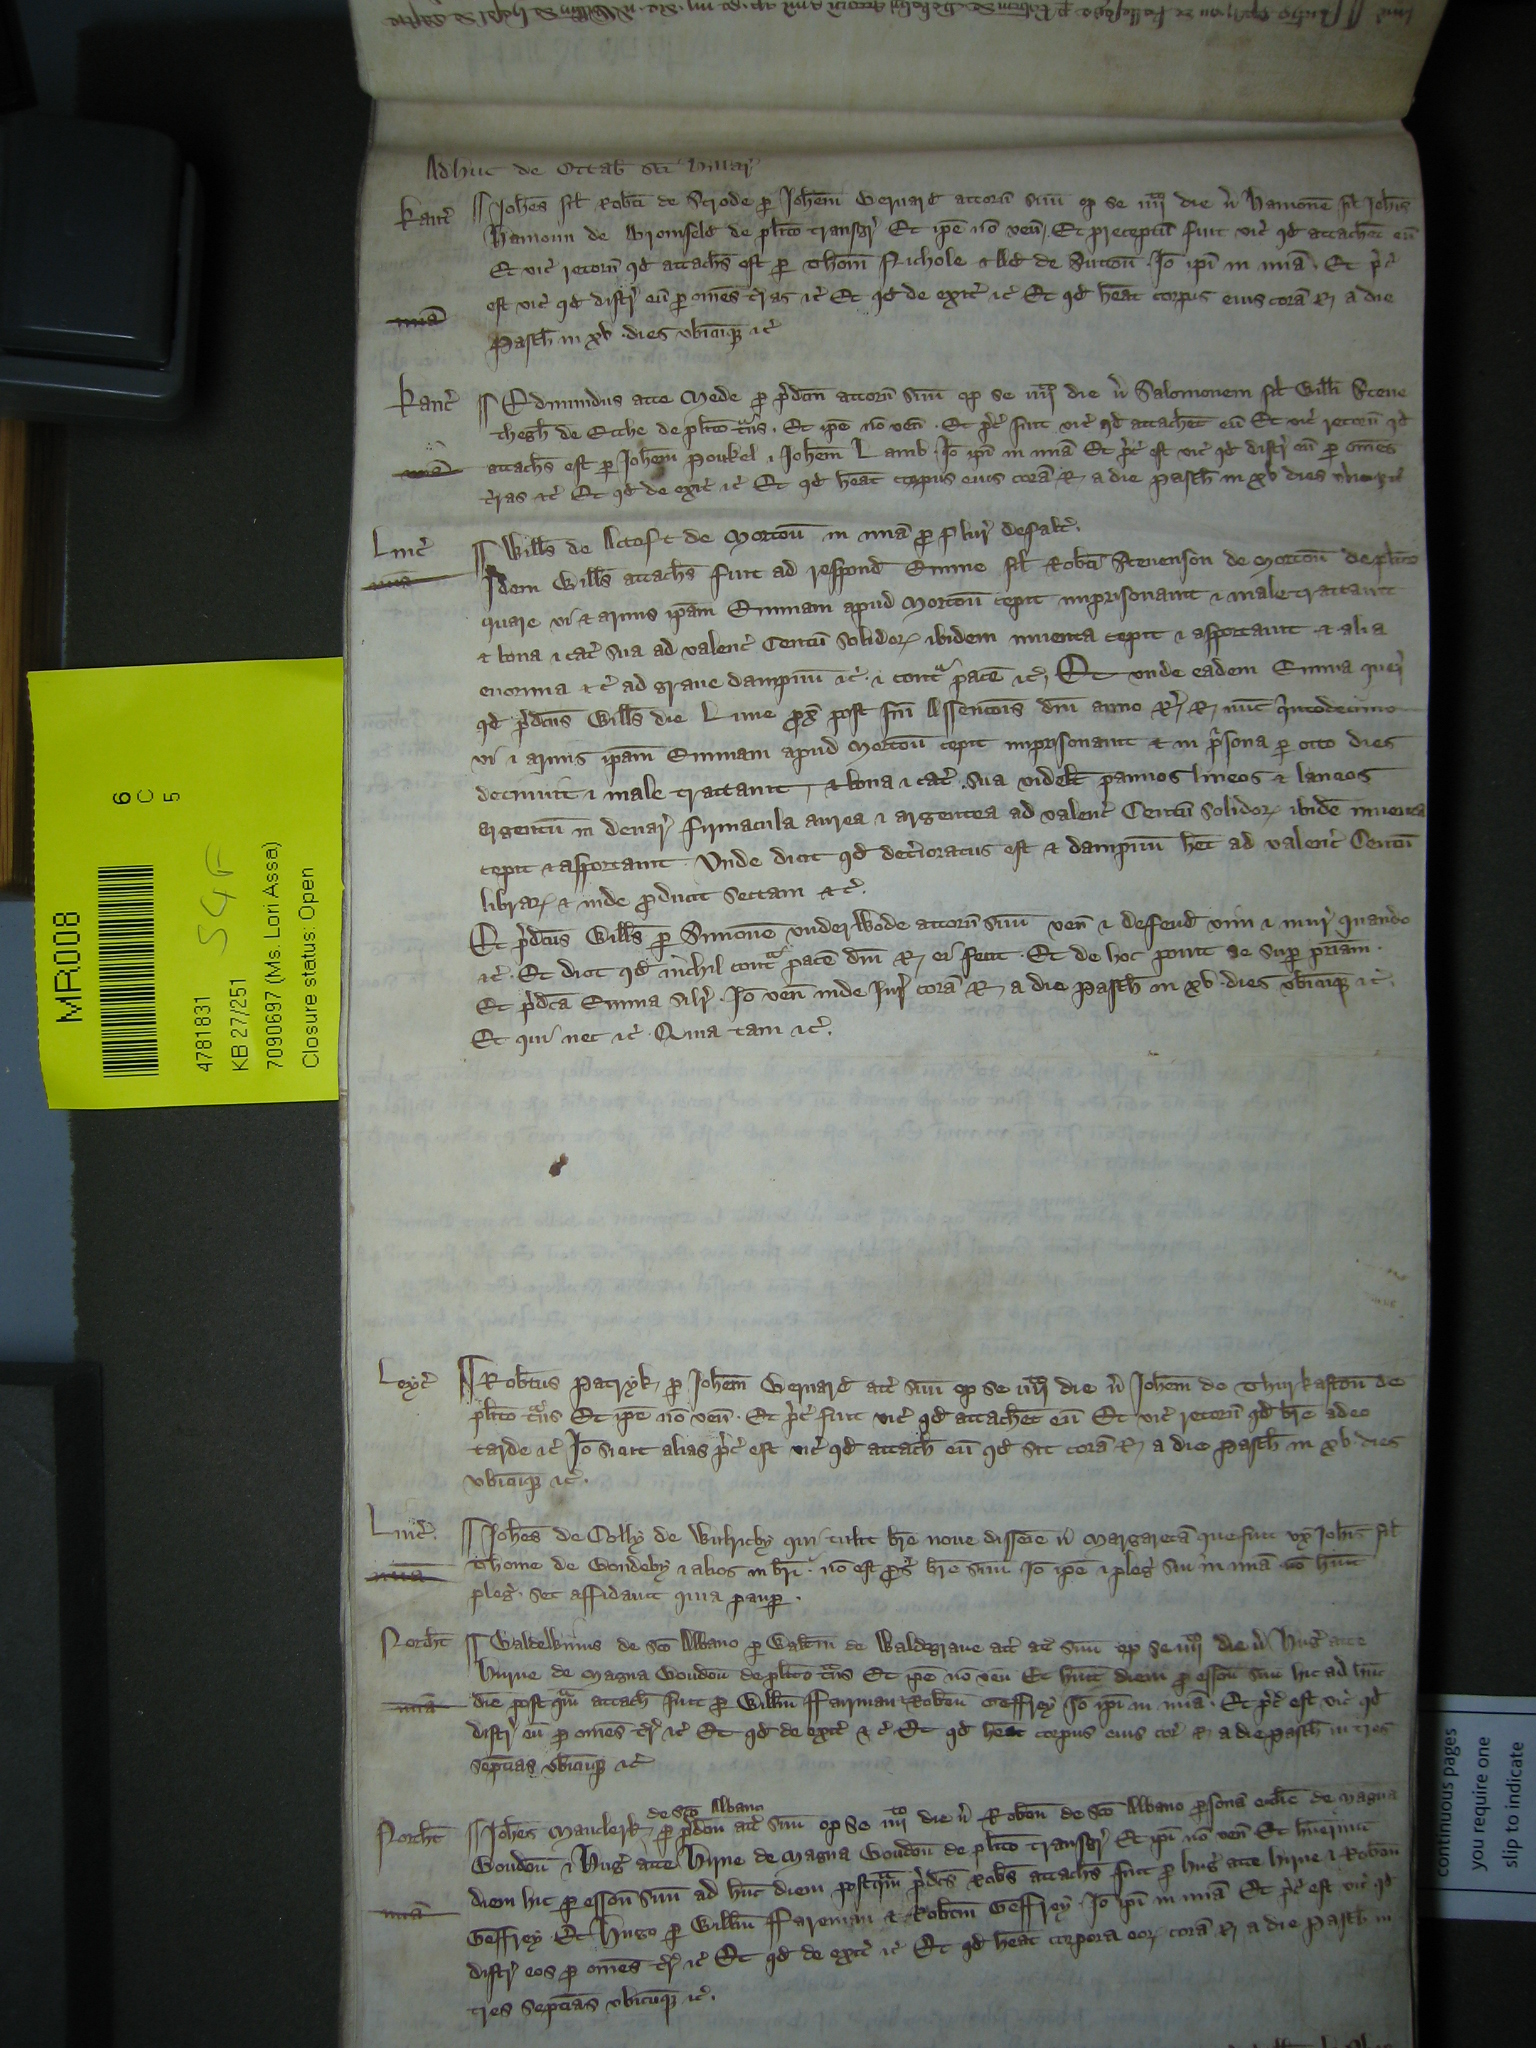 Adhuc de Octab sci Hillar
Kanc
Johes fil Robti de Strode p Johem Bernard attorn suu op se iiij die v Hamone fil Johis
Hamoun de Bromfeld de plito transgr Et ipe no ven Et preceptu fuit vic qd attachet eu
Et vic retorn qd attachs est p Thom Nichole & Ad de Suttoun Io ipi in mia Et pc
mia
est vic qd distr eu p omes tras &c Et qd de exit &c Et qd heat corpus eius cora R a die
Pasch in xv dies vbicuq &c
Kanc
Edmundus atte Mede p pdcm attorn suu op se iiij die v Salomonem fil Willi Steue
thegh de Ecche de plito tns Et ipe no ven Et pc fuit vic qd attachet eu Et vic retorn qd
mia
attachs est p Johem Poukel & Johem Lamb Io ipi in mia Et pc est vic qd distr eu p omes
tras &c Et qd de exit &c Et qd heat corpus eius cora R a die Pasch in xv dies vbicuq &c
Linc
Wills de de Mortou in mia p plur defalt
mia
Idem Wills attachs fuit ad respond Emme fil Robti Steuenson de Mortou de plito
quare vi & armis ipam Emmam apud Mortou cepit imprisonauit & male tractauit
& bona & cat sua ad valenc Centu solidor ibidem inuenta cepit & asportauit & alia
enormia &c ad graue dampnu &c & contra pace &c Et vnde eadem Emma quer
qd pdcus Wills die Lune px post fm Assencois dni anno R R nuc quitodecimo
vi & armis ipam Emmam apud Mortou cepit imprisonauit & in prisona p octo dies
detinuit & male tractauit & bona & cat sua videlt pannos lineos & laneos
argentu in denar firmacula aurea & argentea ad valenc Centu solidor ibide inuenta
cepit & asportauit Vnde dicit qd deterioratus est & dampnu het ad valenc Centu
librar & inde producit sectam &c
Et pdcus Wills p Simone vnderwode attorn suu ven & defend vim & iniur quando
&c Et dicit qd nichil contra pace dni R ei fecit Et de hoc ponit se sup priam
Et pdca Emma silr Io ven inde Jur cora R a die Pasch in xv dies vbicuq &c
Et qui nec &c Quia tam &c
Leyc
Robtus Patryk p Johem Bernard att suu op se iiij die v Johem de Thurkaston de
plito tns Et ipe no ven Et pc fuit vic qd attachet eu Et vic retorn qd bre adeo
tarde &c Io sicut alias pc est vic qd attach eu qd sit cora R a die Pasch in xv dies
vbicuq &c
Linc
Johes de Colly de qui tulit bre noue disseie v Margareta que fuit vx Johis fil
mia
Thome de Goudeby & alios in bri no est ps bre suu Io ipe & pleg sui in mia no hnt
pleg set affidauit quia paup
Northt
Baldewinus de sco Albano p Waltm de Waldegraue att suu op se iiij die v Hug atte
Hirne de Magna Boudou de plito tns Et ipe no ven Et huit diem p esson suu hic ad hunc
mia
die postqm attach fuit p Willm Fareman & Robtm Geffrey Io ipi in mia Et pc est vic qd
distr eu p omes tr &c Et qd de exit &c Et qd heat corpus eius cor R a die Pasch in tres
septias vbicuq &c
Northt
de sco Albano
Johes Mauclerk p pdcm att suu op se iiij die v Robtm de sco Albano psona ecclie de Magna
Boudou & Hug atte Hirne de Magna Boudou de plito transgr Et ipi no ven Et huerunt
diem hic p esson suu ad hunc diem postqm pdcs Robs attachs fuit p Hug atte Hirne & Robtm
mia
Geffrey Et Hugo p Willm Fareman & Robtm Geffrey Io ipi in mia Et pc est vic qd
distr eos p omes tr &c Et qd de exit &c Et qd heat corpora eor cora R a die Pasch in
tres septias vbicuq &c
MR008
6
C
5
54F
4781831
KB 27/251
7090697 (Ms. Lori Assa)
Closure status: Open
continuous pages
you require one
slip to indicate